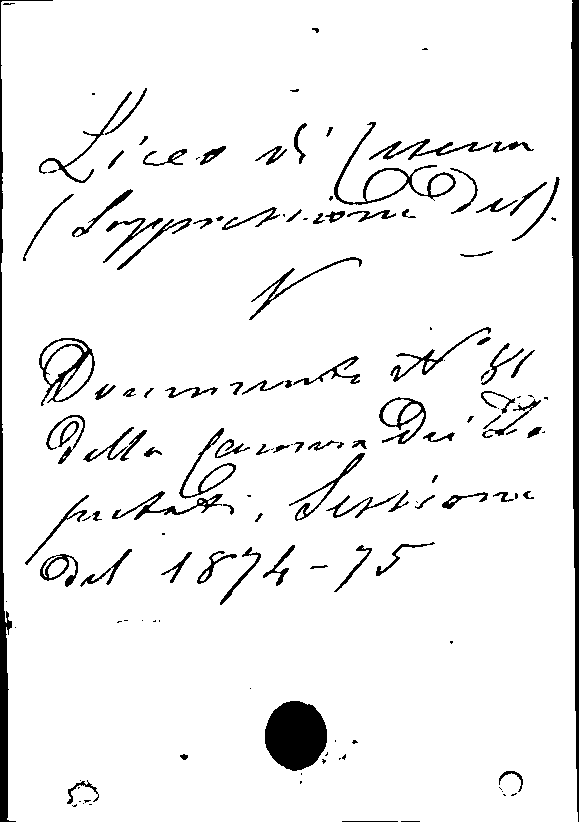 Liceo di Cesena
(Soppressione del).
V
Documento N° 81
della Camera dei De
putati, Sessione
del 1874-75